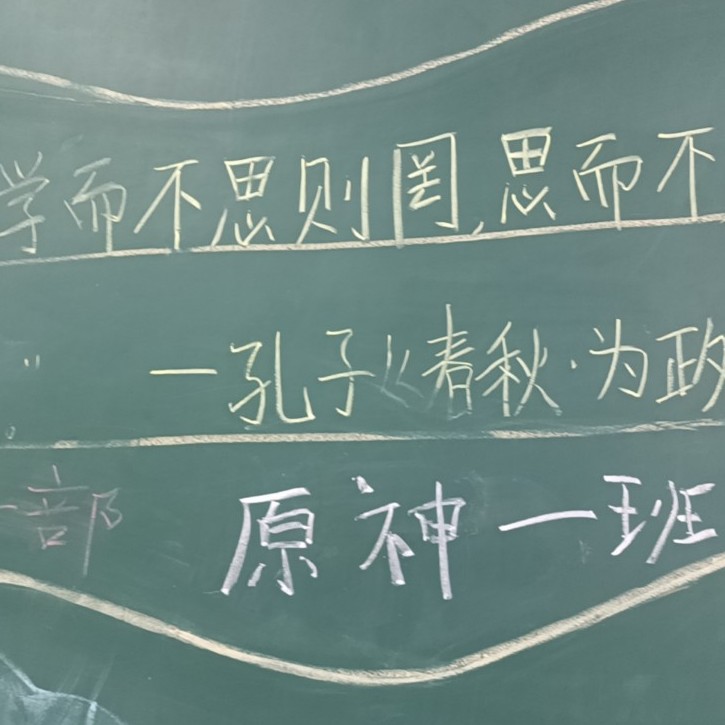 学而不思则罔,思而不
" 一孔子《春秋·为政
一部 原神一班